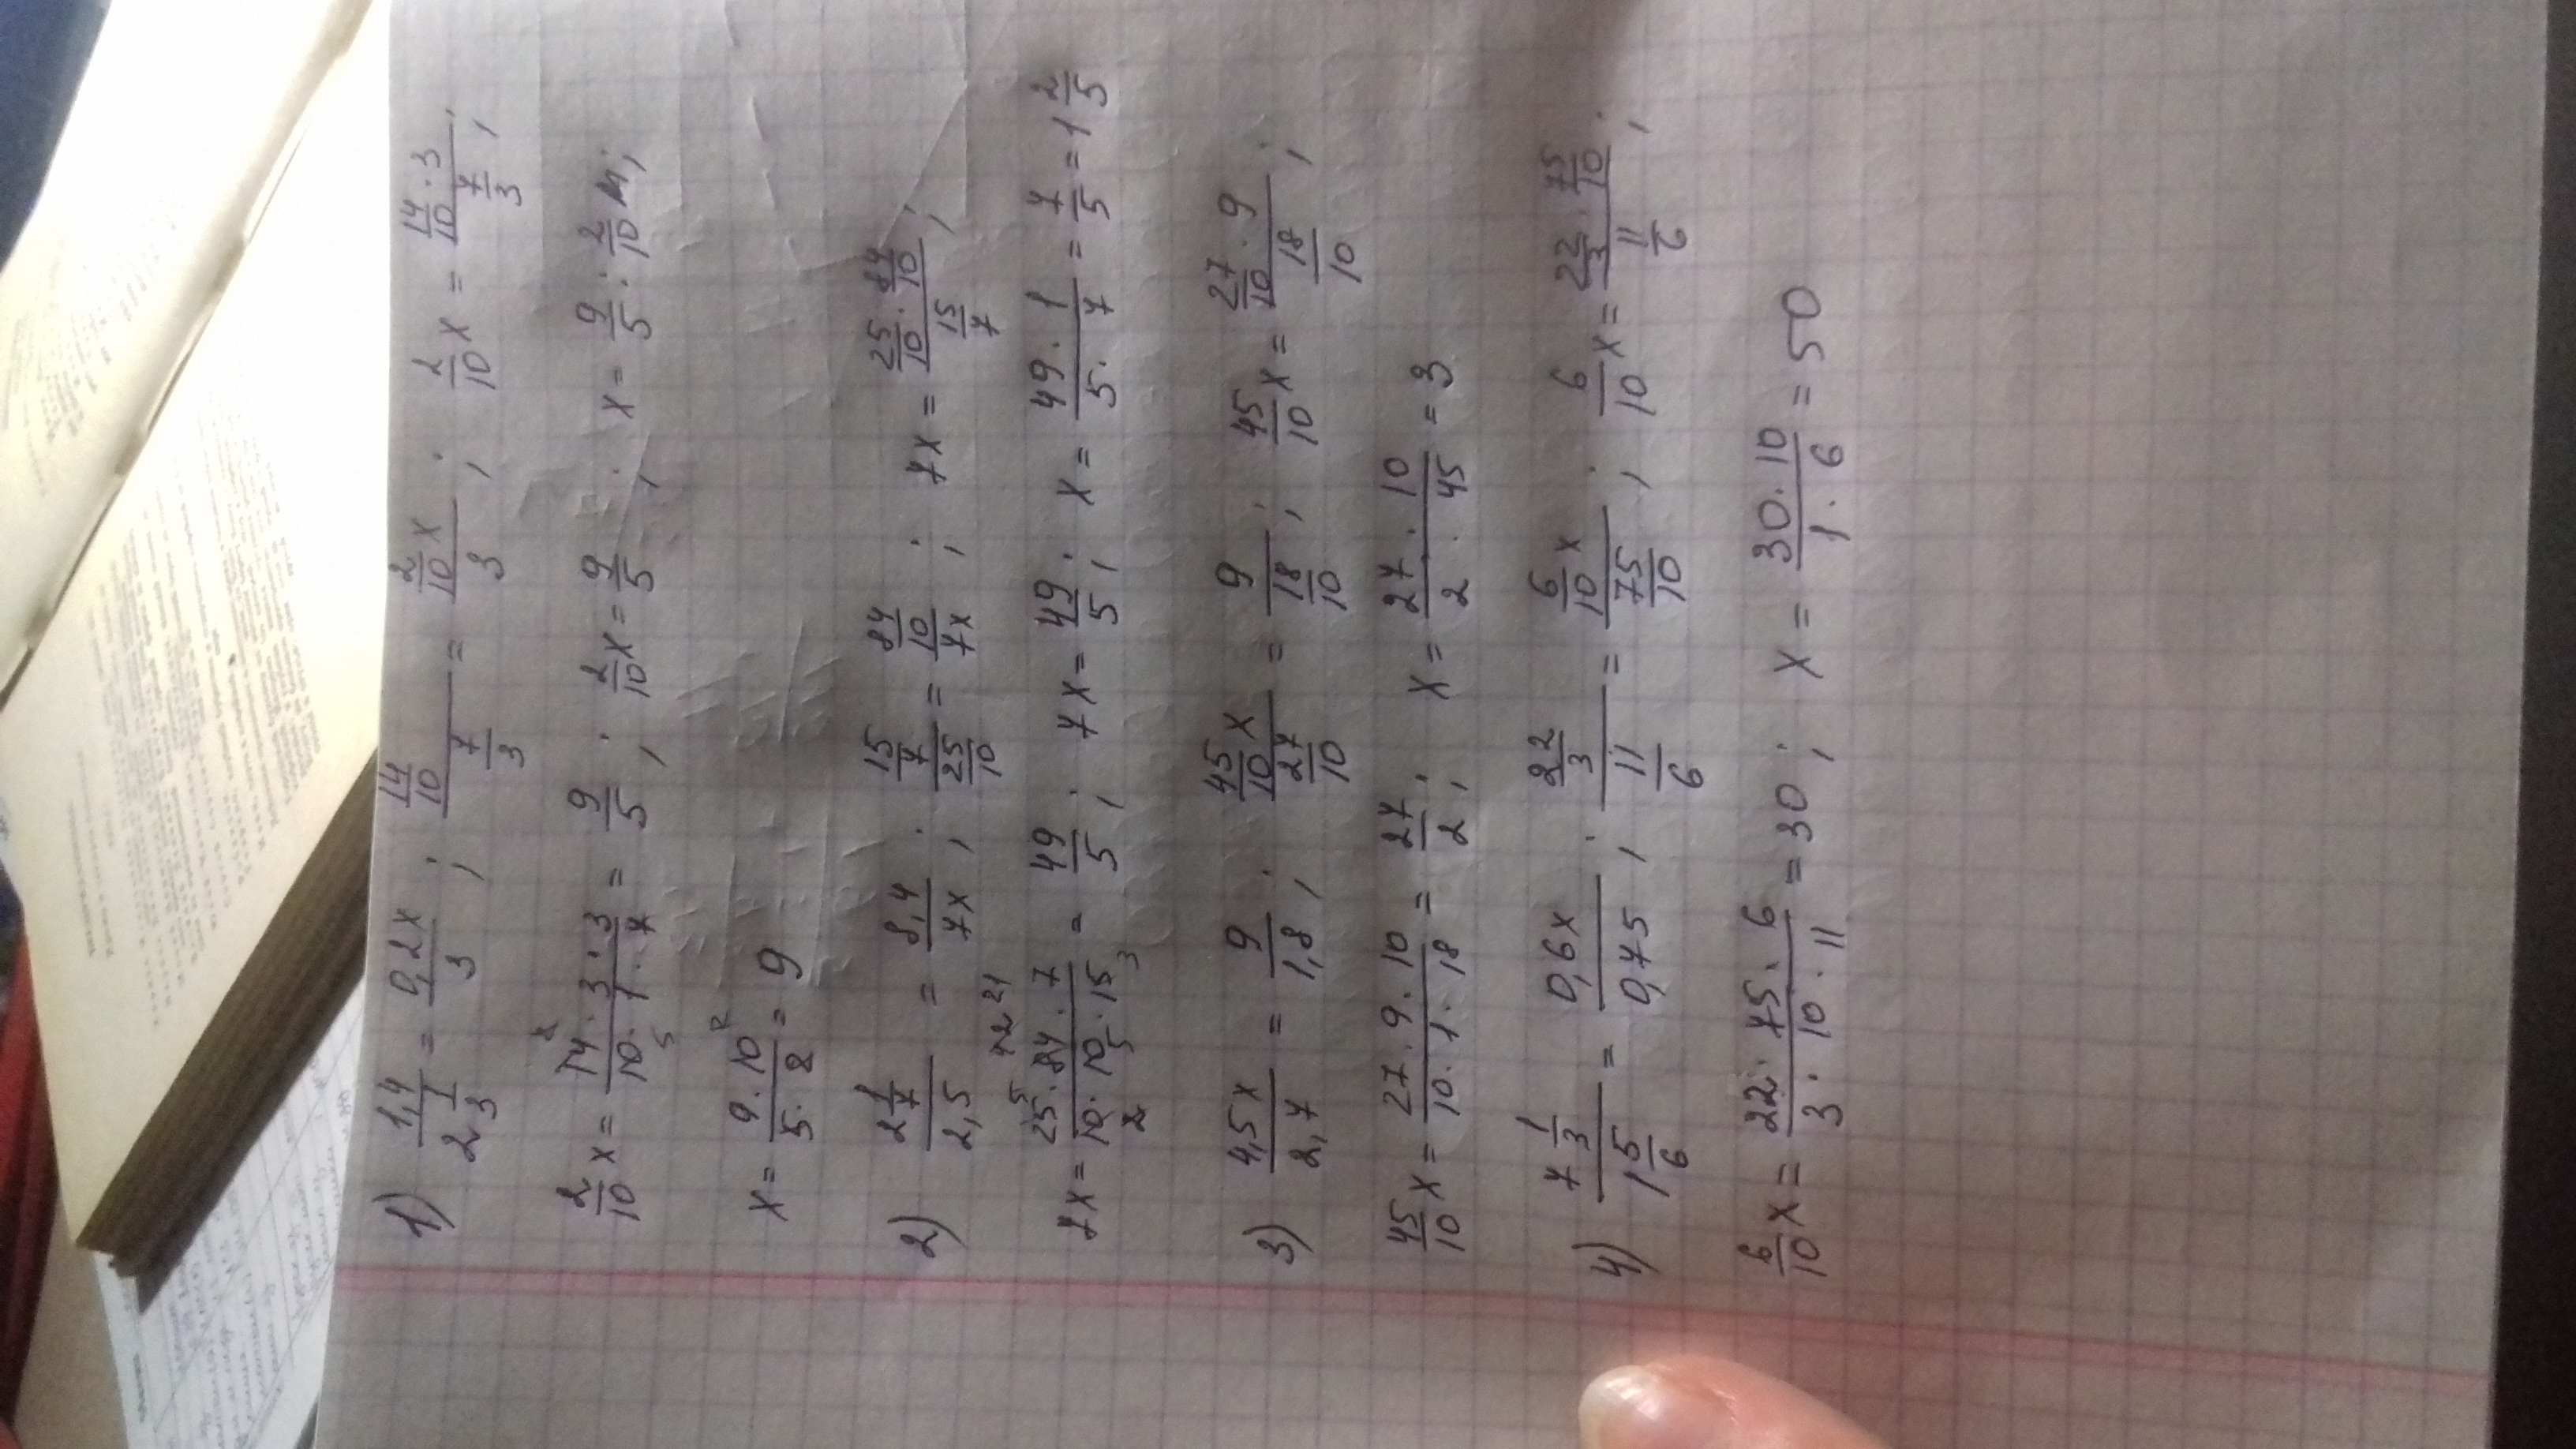 1) 1,4/(2 1/3) = 0,2x/3 ; (14/10)/(7/3) = (2/10 x)/3 ; 2/10 x = (14/10 · 3)/(7/3) ;
2/10 x = (14 · 3 · 3)/(10 · 1 · 7) = 9/5 ; 2/10 x = 9/5 ; x = 9/5 : 2/10 ;
x = (9 · 10)/(5 · 2) = 9
2) (2 1/7)/2,5 = 8,4/7x ; (15/7)/(25/10) = (84/10)/7x ; 7x = (25/10 · 84/10)/(15/7) ;
7x = (25 · 84 · 7)/(10 · 10 · 15) = 49/5 ; 7x = 49/5 ; x = (49 · 1)/(5 · 7) = 7/5 = 1 2/5
3) 4,5x/2,7 = 9/1,8 ; (45/10 x)/(27/10) = 9/(18/10) ; 45/10 x = (27/10 · 9)/(18/10) ;
45/10 x = (27 · 9 · 10)/(10 · 1 · 18) = 27/2 ; x = (27 · 10)/(2 · 45) = 3
4) (7 1/3)/(1 5/6) = 0,6x/0,75 ; (22/3)/(11/6) = (6/10 x)/(75/10) ; 6/10 x = (22/3 · 75/10)/(11/6) ;
6/10 x = (22 · 75 · 6)/(3 · 10 · 11) = 30 ; x = (30 · 10)/(1 · 6) = 50